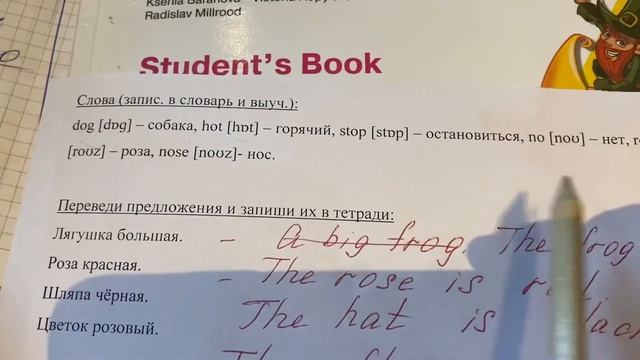 Radislav Millrood
Student's Book
Слова (запис. в словарь и выуч.):
dog [dɒg] – собака, hot [hɒt] – горячий, stop [stɒp] – остановиться, no [noʊ] – нет,
[roʊz] – роза, nose [noʊz]- нос.
Переведи предложения и запиши их в тетради:
Лягушка большая. – A big frog. The frog
Роза красная. – The rose is
Шляпа чёрная. The hat is
Цветок розовый.